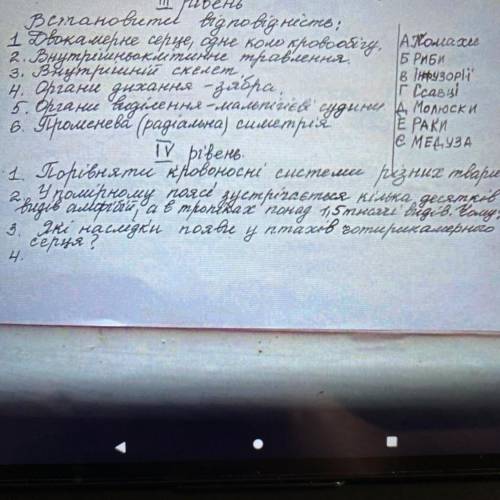 III рівень
Встановити відповідність:
1. Двокамерне серце, одне коло кровообігу.
2. Внутрішньоклітинне травлення.
3. Внутрішній скелет
4. Органи дихання - зябра.
5. Органи виділення - мальпігієві судини
6. Променева (радіальна) симетрія
А. Комахи
Б РИБИ
В Інфузорії
Г Ссавці
Д. Молюски
Е РАКИ
Є МЕДУЗА
IV рівень.
1. Порівняти кровоносні системи різних твари
2. У помірному поясі зустрічається кілька десятків
видів амфібій, а в тропіках понад 1,5 тисячі видів. Чому
3. Які наслідки появи у птахів чотирикамерного
серця?
4.